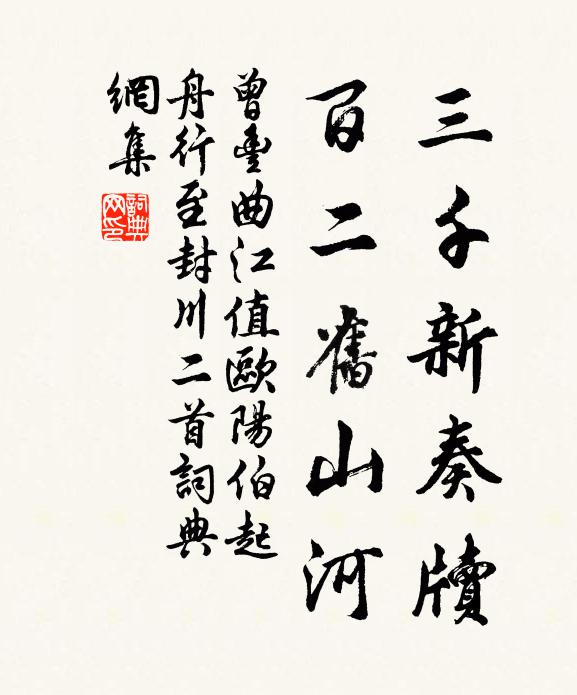 三千新奏牘
百二舊山河
曾豐曲江值歐陽伯起
舟行至封川二首詞典
網集
詞典
网印